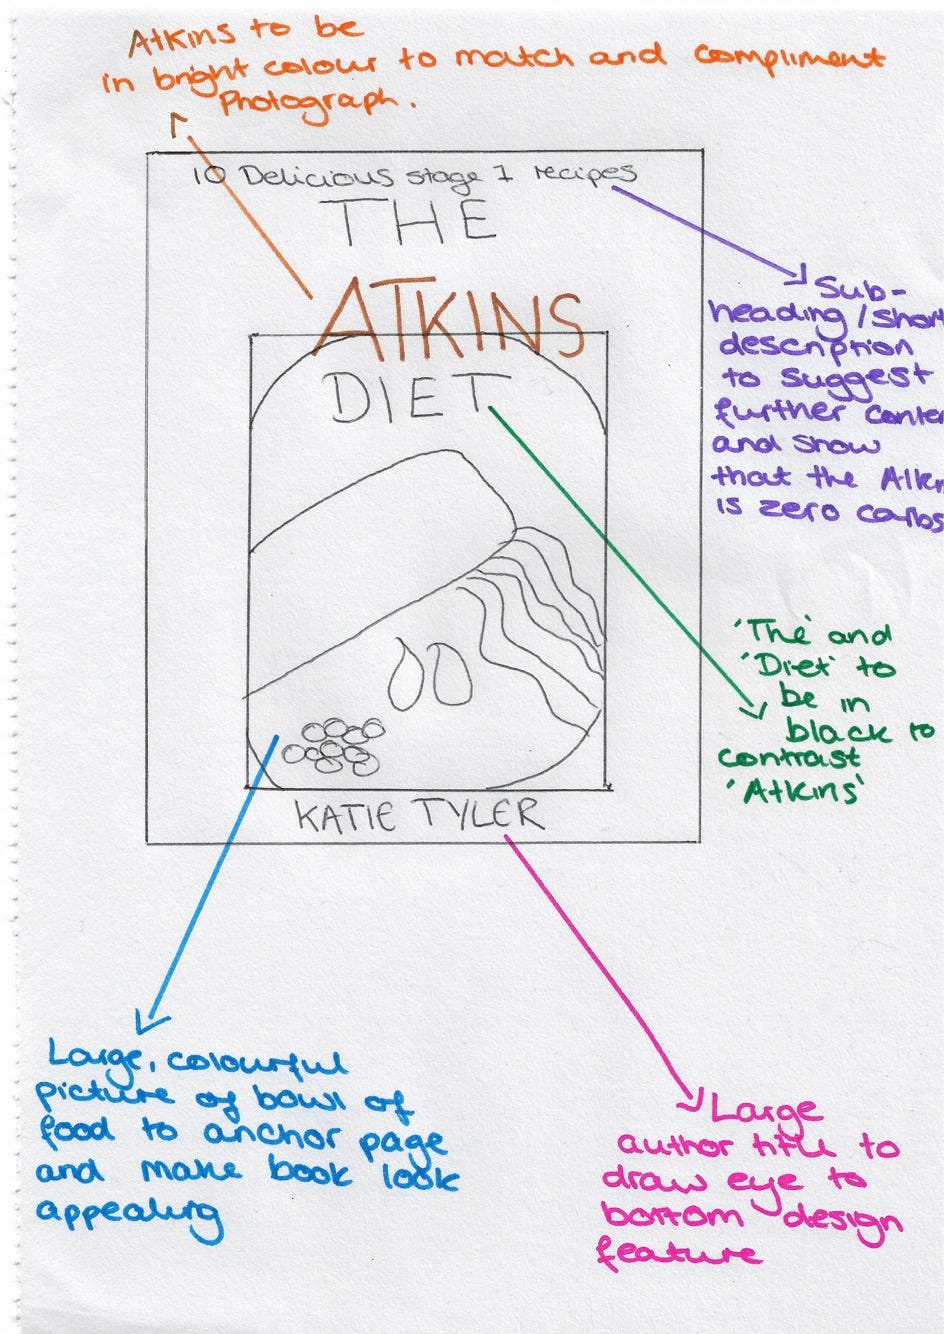 Atkins to be
in bright colour to match and compliment
Photograph.
10 Delicious stage 1 recipes
THE
ATKINS
DIET
KATIE TYLER
Sub-
heading/short
description
to suggest
further
and show
that the
is zero carbs
'The' and
'Diet' to
be in
black to
contrast
'Atkins'
Large, colourful
picture of bowl of
food to anchor page
and make book look
appealing
Large
author title to
draw eye to
bottom design
feature